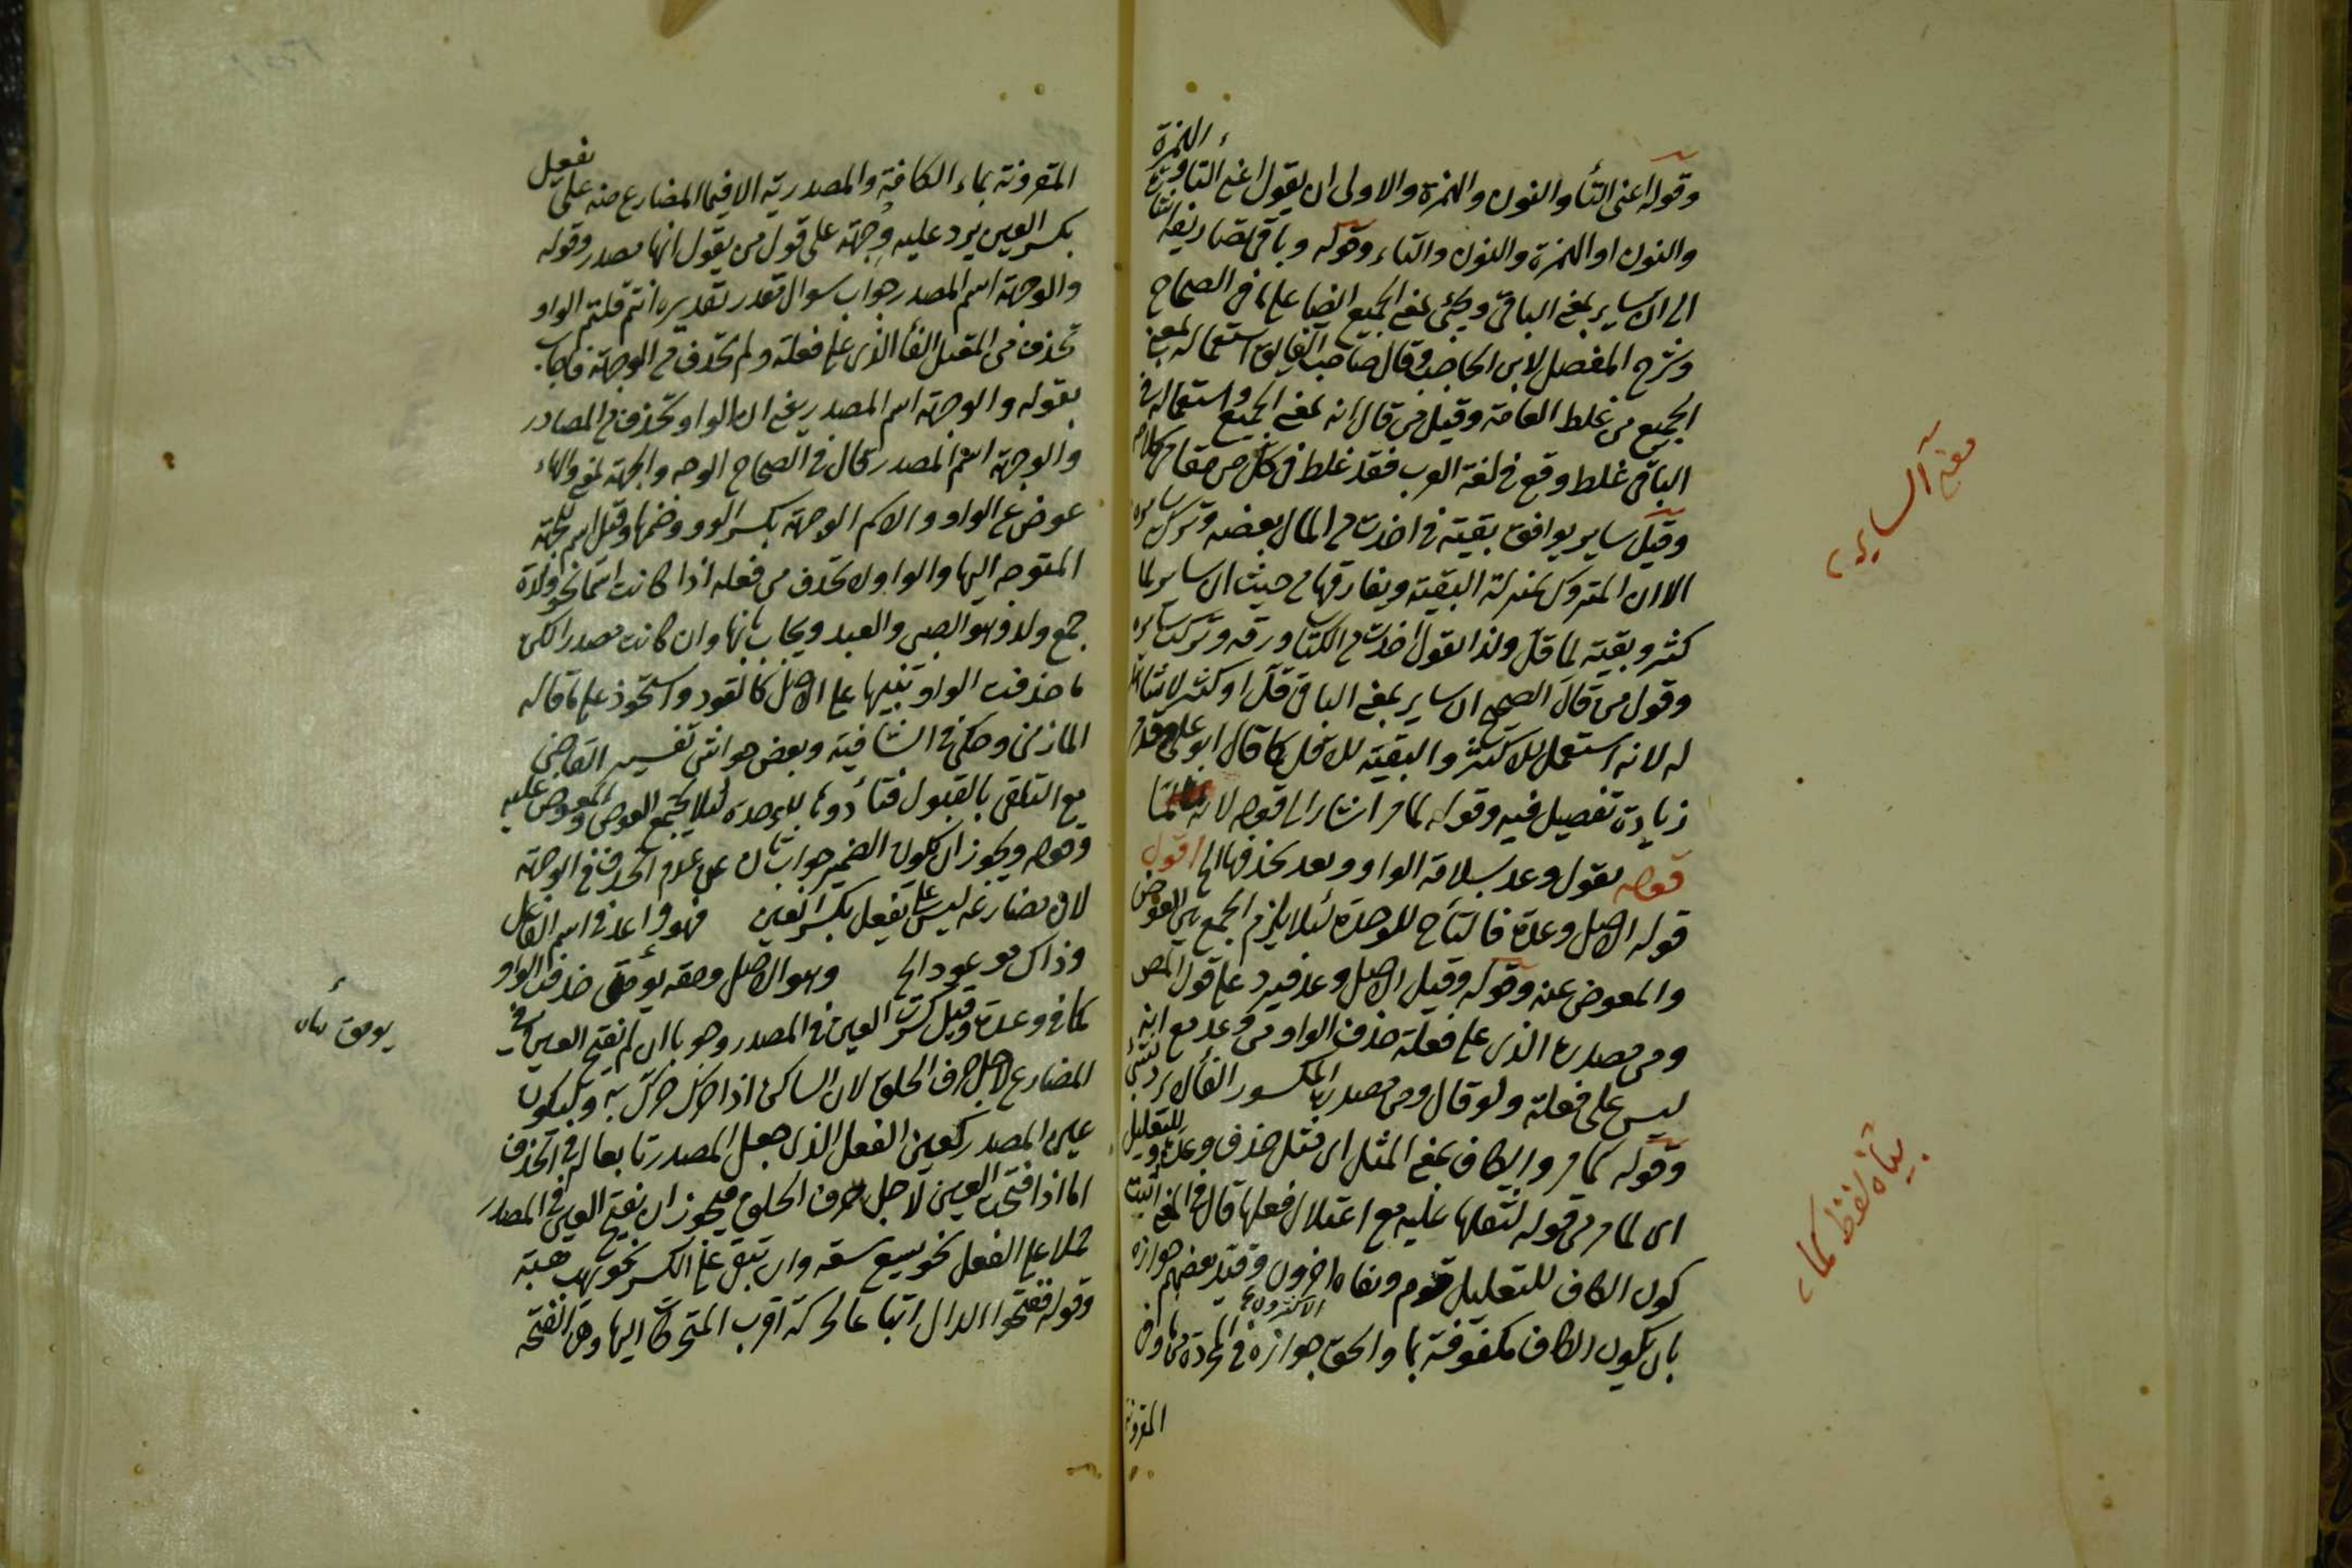 وقوله اعنى التأ والنون والهمزة والاولى ان يقول اعنى التاء والهمزة
والنون او الهمزة والنون والتاء وقوله وباقى تصاريفه
الى ان ساير بمعنى الباقى ويجئ بمعنى الجميع ايضا على ما فى الصحاح
وشرح المفصل لابن الحاجب وقال صاحب الفايق استعماله بمعنى
الجميع من غلط العامة وقيل من قال انه بمعنى الجميع واستعماله فى
الباقى غلط وقع فى لغة العرب فقد غلط فى كل من مقامى كلامه
وقيل ساير يوافق بقية فى اخذت من المال بعضه وتركت سايره
الا ان المتروك بمنزلة البقية ويفارقها من حيث ان ساير لما
كثر وبقية لما قل ولذا تقول اخذت من الكتاب ورقه وتركت سايره
وقول من قال الصحيح ان ساير بمعنى الباقى قل او كثر لا
له لانه استعمل للاكثر والبقية للاقل كما قال ابو على وقدم
زيادة تفصيل فيه وقوله لما مر اشار الى قوله لانه
قوله يقول وعد بسلامة الواو وبعد بحذفها الخ اقول
قوله الاصل وعدة فالتأ ح للوحدة لئلا يلزم الجمع بين العوض
والمعوض عنه وقوله وقيل الاصل وعد فيرد على قول المص
ومن مصدره الذى على فعلة حذف الواو من وعد مع انه
ليس على فعلة ولو قال ومن مصدره المكسور الفأ
وقوله كما مر والكاف بمعنى المثل اى مثل حذف وعد وقيل للتعليل
اى لما مر من قوله لثقلها عليه مع اعتلال فعلها قال فى المغنى اثبت
كون الكاف للتعليل قوم ونفاه الاكثرون وقيد بعضهم جوازه
بان يكون الكاف مكفوفة بما والحق جوازه فى المجردة من ما وفى
المقرونة
معنى الساير
بيان لفظ كما
المقرونة بماء الكافة والمصدرية الا فيما المضارع منه على يفعل
بكسر العين يرد عليه وجهة على قول من يقول انها مصدر وقوله
والوجهة اسم المصدر جواب سوال مقدر تقديره انتم قلتم الواو
تحذف من المعتل الفأ الذى على فعلة ولم تحذف من الوجهة فاجاب
بقوله والوجهة اسم المصدر يعنى ان الواو تحذف من المصادر
والوجهة اسم المصدر قال فى الصحاح الوجه والجهة بمعنى والهاء
عوض عن الواو والاسم الوجهة بكسر الواو وضمها وقيل اسم للجهة
المتوجه اليها والواو لا تحذف من فعله اذا كانت اسما نحو ولدة
جمع ولد وهو الصبى والعبد ويجاب بانها وان كانت مصدرا لكن
ما حذفت الواو تنبيها على الاصل كالقود واستحوذ على ما قاله
المازنى وحكى فى الشافية وبعض حواشى تفسير القاضى
مع التلقى بالقبول فتأ دوما للوحدة لئلا يجتمع العوض والمعوض عليه
وقوله ويجوز ان يكون الضمير جواب ثان عن عدم الحذف فى الوجهة
لان مضارعه ليس على يفعل بكسر العين فهو واعد فى اسم الفاعل
وذاك موعود الخ وهو الاصل ومقه يومق حذفت الواو
كما فى وعدة وقيل كسرت العين فى المصدر وجوبا ان لم تفتح العين فى
المضارع لاجل حرف الحلق لان الساكن اذا حرك حرك به وليكون
عين المصدر كعين الفعل الذى جعل المصدر تابعا له فى الحذف
اما اذا فتحت العين لاجل حرف الحلق فيجوز ان تفتح العين فى المصدر
حملا على الفعل نحو يسع سعة وان تبقى على الكسر نحو يهب هبة
وقوله ففتحوا الدال اتباعا لحركة اقرب المتحركات اليها وهى الفتحة